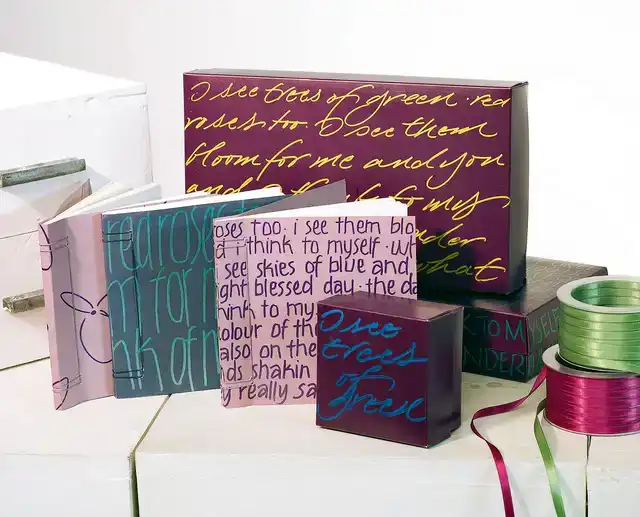 I see trees of green · red
roses too. I see them
bloom for me and you
and to my
nder
what
red roses
m for m
nk of m
oses too. i see them blo
i think to myself · wh
see skies of blue and
ght blessed day · the da
hink to my
olour of th
also on the
nds shakin
y really sa
I see
trees
of
green
K TO MYSELF
NDER